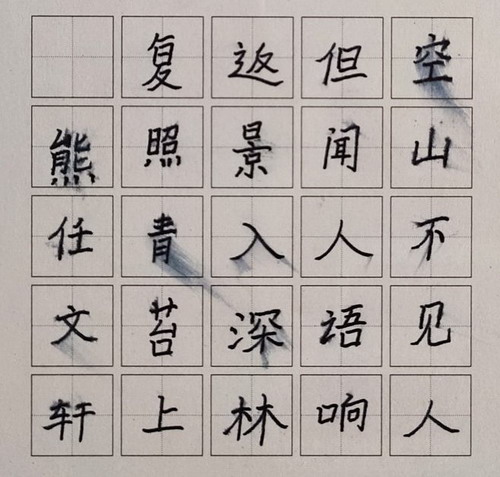 空山不见人
但闻人语响
返景入深林
复照青苔上
熊任文轩